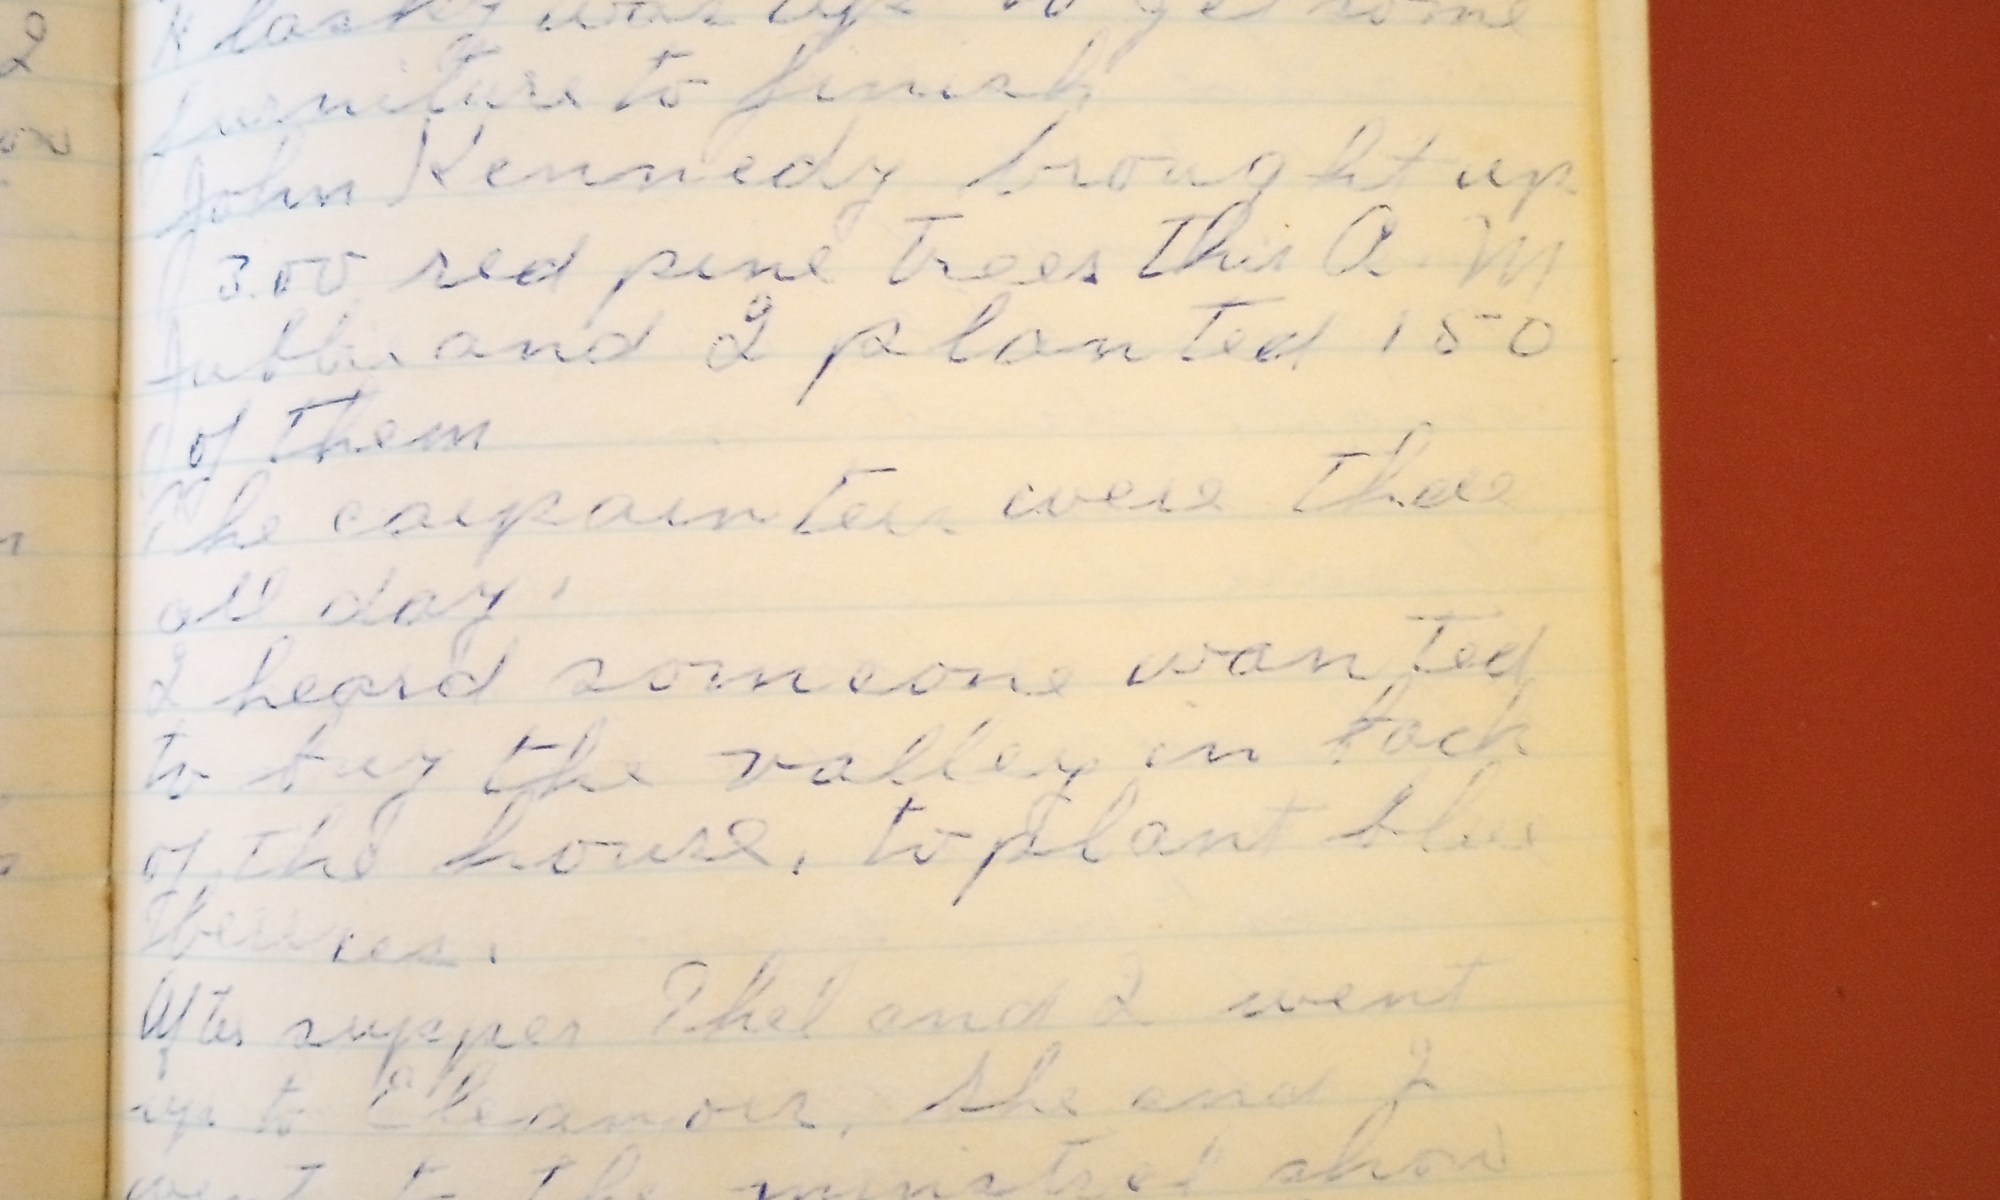 was up to get some
furniture to finish
John Kennedy brought up
3.00 red pine trees this A.M
and I planted 150
of them
The carpainters were there
all day.
I heard someone wanted
to buy the valley in back
of the house, to plant blue
berries.
After supper Phel and I went
up to Eleanors, She and I
went to the minstrel show